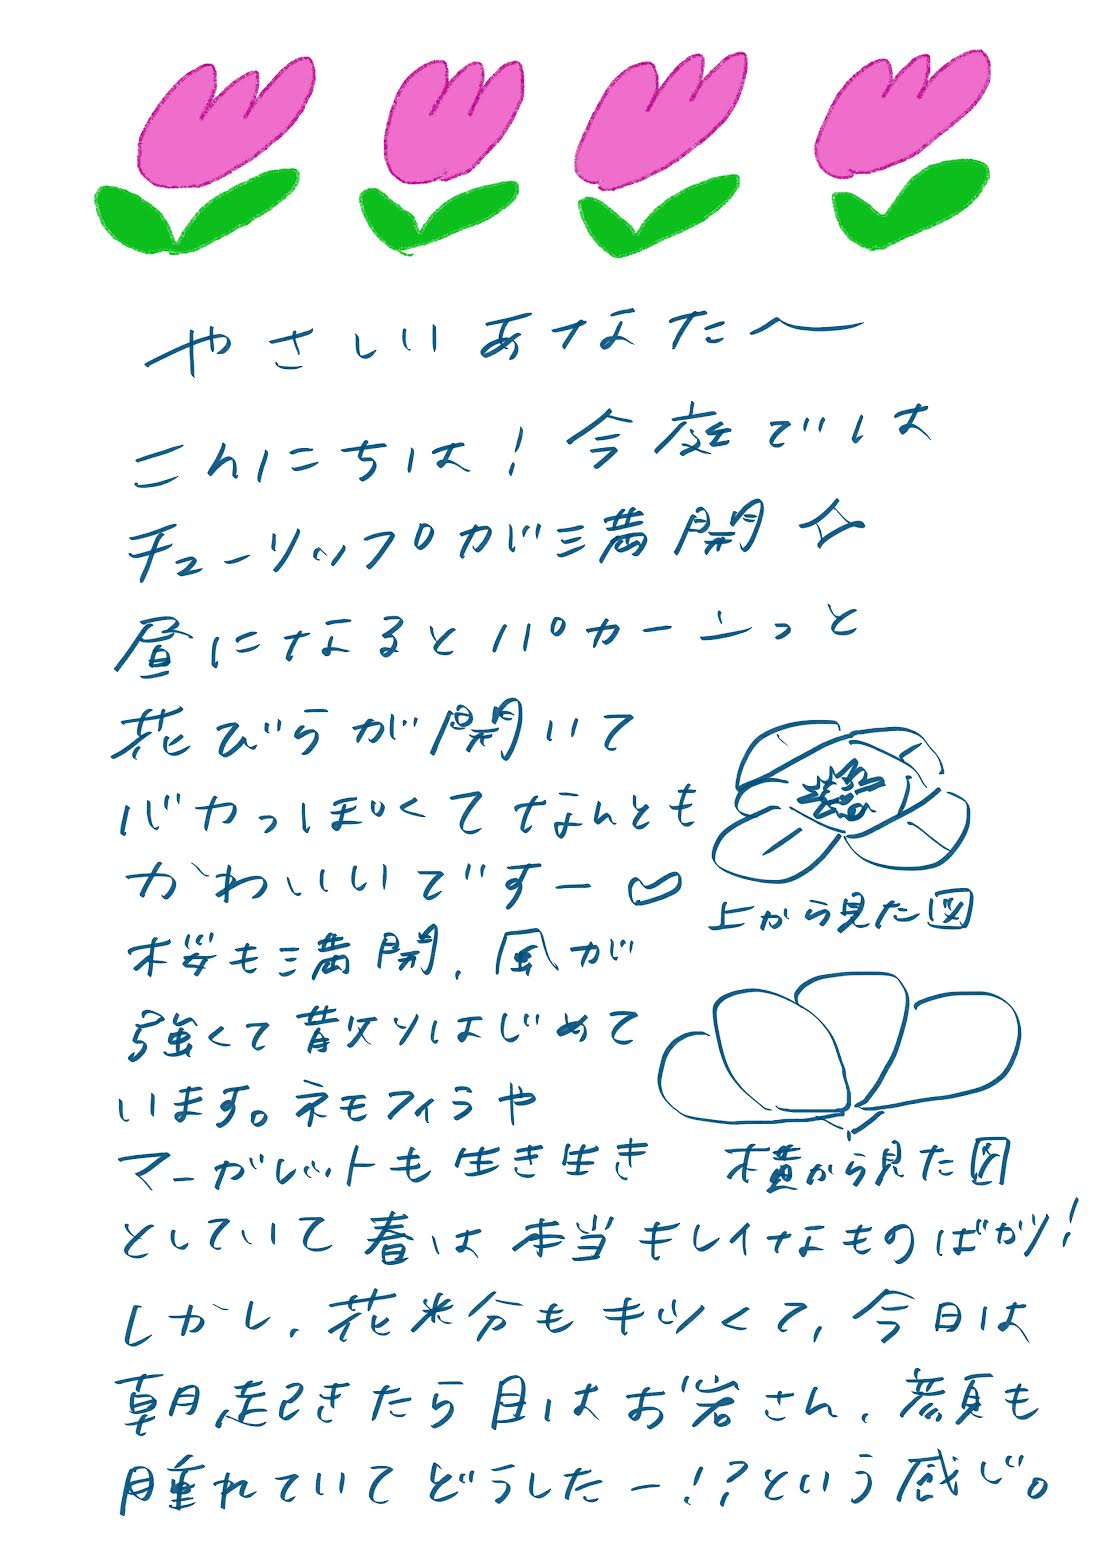 やさしいあなた〜
こんにちは！今庭では
チューリップが満開✧
昼になるとパカーンっと
花びらが開いて
バカっぽくてなんとも
かわいいですー♡
上から見た図
桜も満開、風が
強くて散りはじめて
います。ネモフィラや
マーガレットも生き生き
横から見た図
としていて春は本当キレイなものばかり！
しかし、花粉もキツくて、今日は
朝起きたら目はお岩さん、顔も
腫れていてどうしたー！？という感じ。